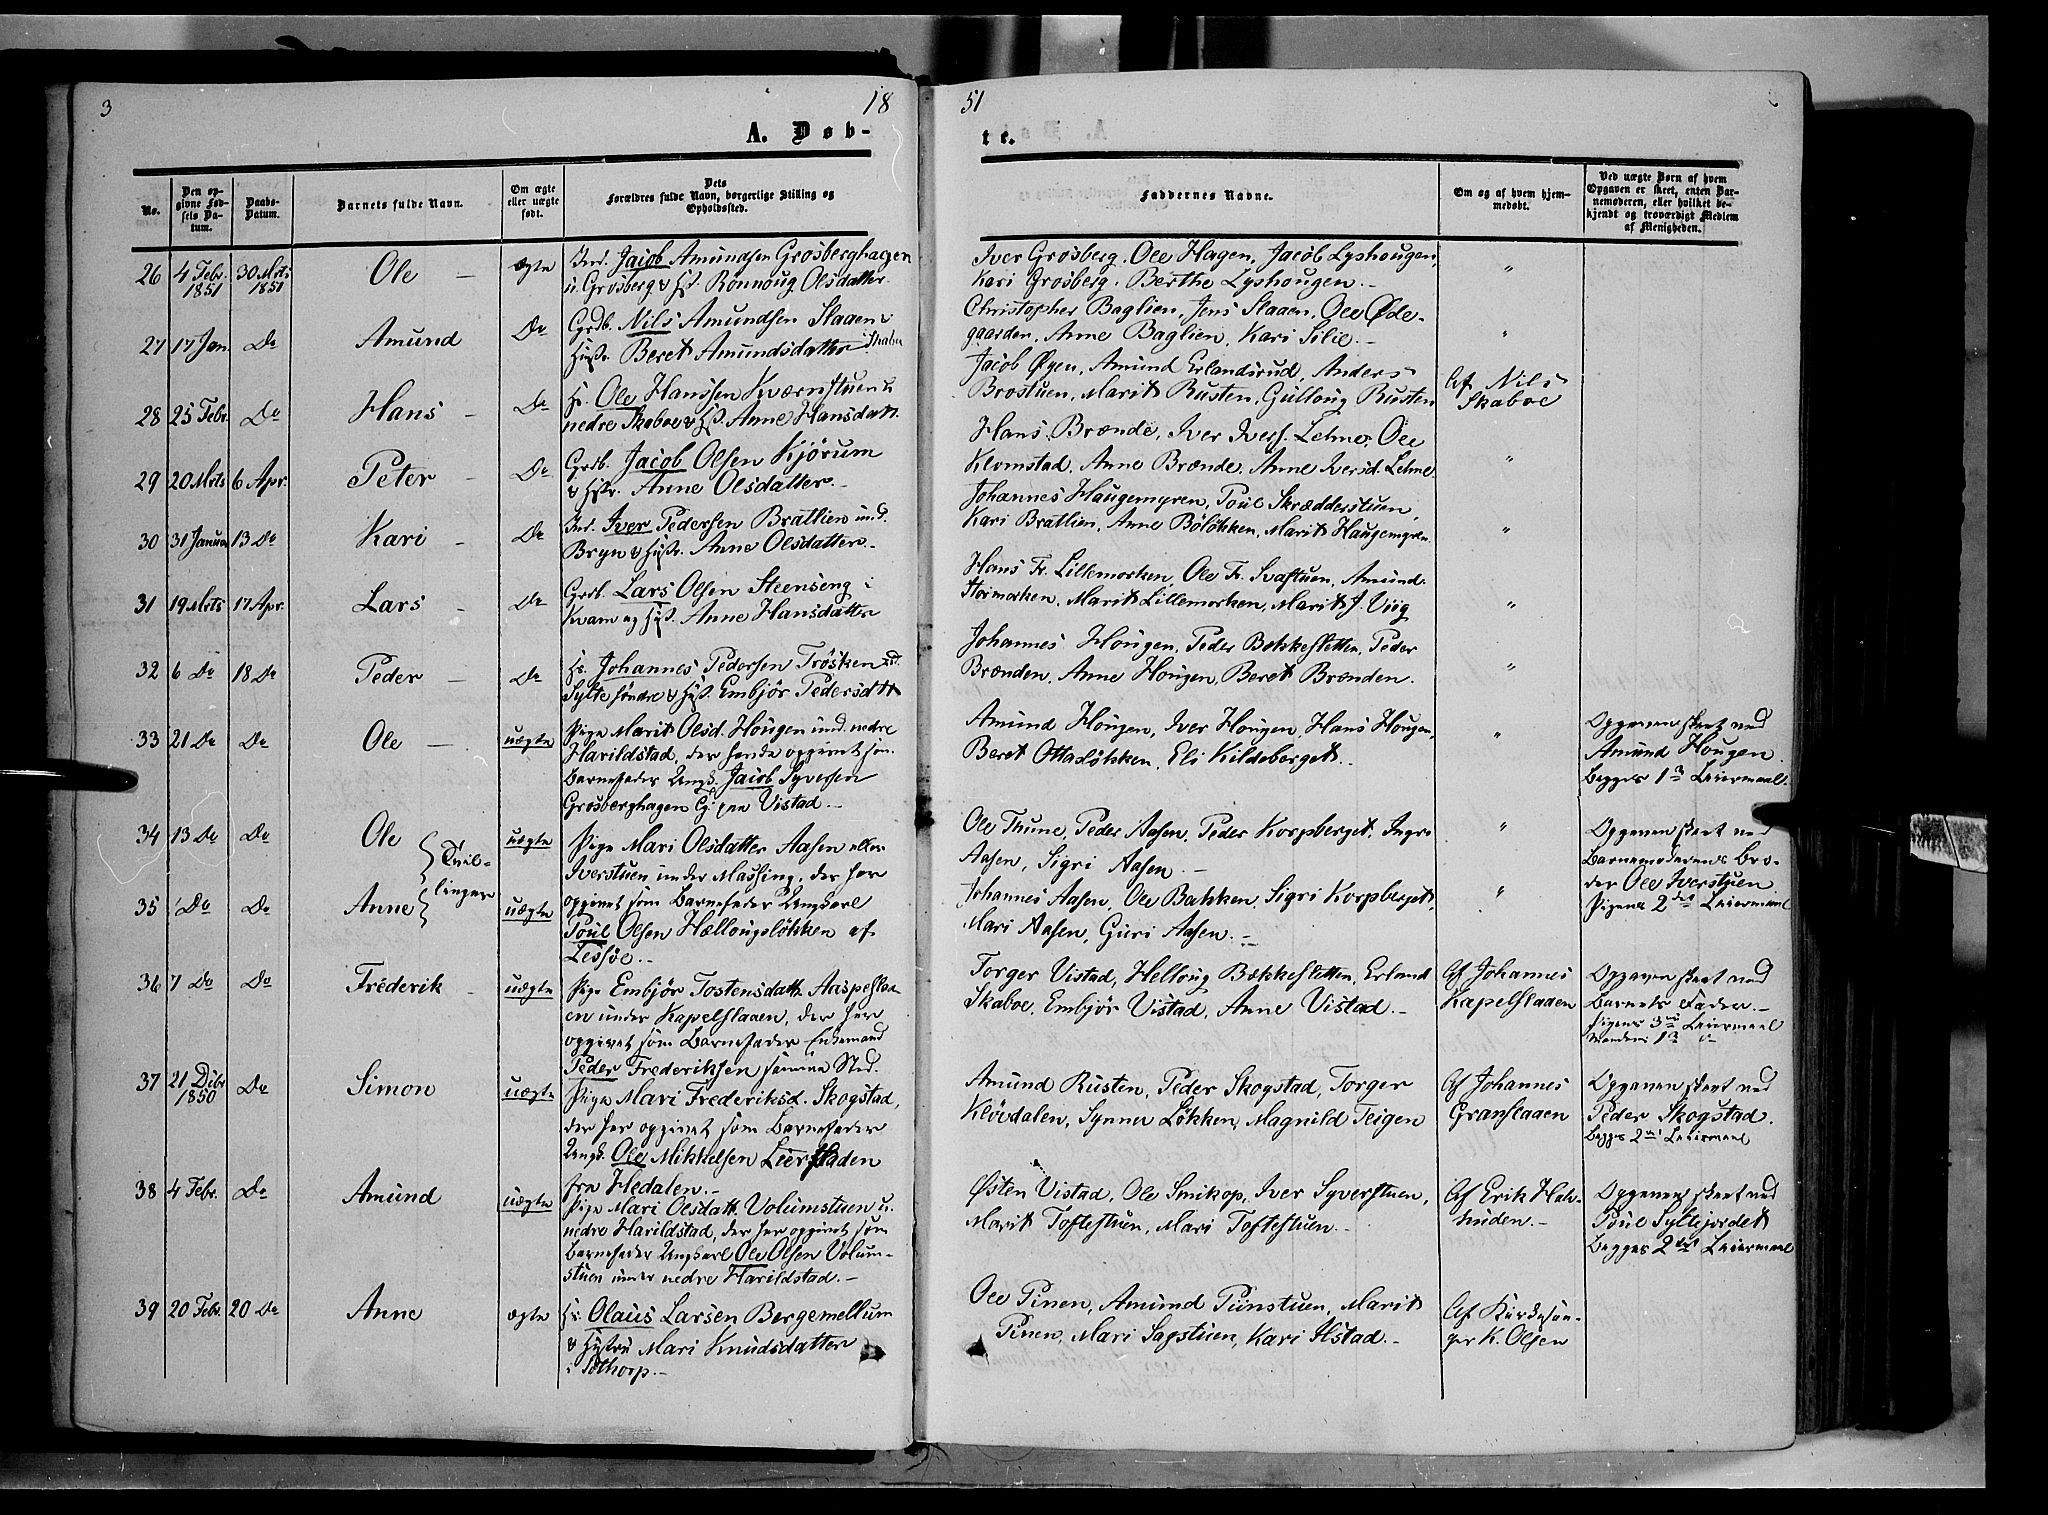 3
18
51
A. Døb-
te.
No.
Den op-
givne Fød-
sels Da-
tum.
Daabs-
Datum.
Barnets fulde Navn.
Om ægte
eller uægte
født.
Dets
Forældres fulde Navn, borgerlige Stilling og
Opholdssted.
Faddernes Navne.
Om og af hvem hjem-
medøbt.
Ved uægte Børn af hvem
Opgaven er skeet, enten Bar-
nemoderen, eller hvilket be-
kjendt og troværdigt Medlem
af Menigheden.
26 4 Febr. 1851 30 Mrts 1851 Ole – ægte
Ind. Jacob Amundsen Grosberghagen
u. Grosberg & Hst. Rønnoug Olsdatter.
Iver Grosberg. Ole Hagen, Jacob Lyshougen,
Kari Grosberg. Berthe Lyshougen. – "
27 17 Jan. Do Amund Do
Grdb. Nils Amundsen Slaaen &
Hustr. Beret Amundsdatter i Skabu
Christopher Baglien, Jens Slaaen, Ole Øde-
gaarden, Anne Baglien, Kari Silie. – "
28 25 Febr. Do Hans – Do
Hr. Ole Hanssen Kværnstuen u
nedre Skaboe & Hst. Anne Hansdatt.
Jacob Øyen, Amund Erlandsrud, Anders
Brostuen, Marit Rusten, Gulloug Rusten
Af Nils
Skaboe
29 20 Mrts 6 Apr. Peter – Do
Grdb. Jacob Olsen Kjörum
& Hstr. Anne Olsdatter. –
Hans Brænde, Iver Ivers. Lelme, Ole
Klomstad, Anne Brænde. Anne Iversd. Lelme. "
30 31 Januar 13 Do Kari – Do
Ind. Iver Pedersen Bratlien und.
Bryn & Hstr. Anne Olsdatter. –
Johannes Haugemyren, Poul Skrædderstuen,
Kari Bratlien, Anne Bölökken, Marit Haugemyren "
31 19 Mrts 17 Apr. Lars – Do
Grdb. Lars Olsen Steenseng i
Kvam og Hst. Anne Hansdatter
Hans Fr. Lillemorken, Ole Fr. Svastuen, Amund
Stormorken, Marit Lillemorken, Marit J. Viig "
32 6 Do 18 Do Peder – Do
Hr. Johannes Pedersen Trösken ud.
Sylte søndre & Hst. Embjör Pedersdtr
Johannes Hougen, Peder Bækkesletten, Peder
Brænden, Anne Hougen, Beret Brænden. "
33 21 Do Do Ole – uægte
Pige Marit Olsd. Hougen und. nedre
Harildstad, der havde opgivet som
Barnefader Ungk. Jacob Syversen
Grosberghagen Gj. paa Vistad. –
Amund Hougen, Iver Hougen, Hans Hougen,
Beret Ottaslökken, Eli Kildeberget. – "
Opgaven skeet ved
Amund Hougen.
Begges 1ste Leiermaal.
34 13 Do Do Ole
Tvil-
linger
uægte
Pige Mari Olsdatter Aasen eller
Iverstuen under Massing, der har
opgivet som Barnefader Ungkarl
Poul Olsen Hællongslökken af
Lessøe. –
Ole Thune, Peder Aasen, Peder Korpberget, Ingri
Aasen, Sigri Aasen. – "
Opgaven skeet ved
Barnemoderens Bro-
der Ole Iverstuen.
Pigens 2det Leiermaal
35 Do Do Anne uægte
Johannes Aasen, Ole Bakken, Sigri Korpberget,
Mari Aasen, Guri Aasen. – "
36 7 Do Do Frederik – uægte
Pige Embjör Tostensdatt. Aaspesla-
en under Kapelslaaen, der har
opgivet som Barnefader Enkemand
Peder Frederiksen samme Sted.
Torger Vistad, Helloug Bækkesletten, Erland
Skaboe, Embjör Vistad, Anne Vistad. –
Af Johannes
Kapelslaaen
Opgaven skeet ved
Barnets Fader. –
Pigens 3die Leiermaal
Mandens 1ste
37 21 Dcbr 1850 Do Simon uægte
Pige Mari Frederiksd. Skogstad,
der har opgivet som Barnefader
Ungk. Ole Mikkelsen Leerstaden
fra Hedalen. –
Amund Rusten, Peder Skogstad, Torger
Klövdalen, Synner Løkken, Magnild Teigen
Af Johannes
Granslaaen
Opgaven skeet ved
Peder Skogstad.
Begges 2det Leiermaal
38 4 Febr. Do Amund uægte
Pige Mari Olsdatt. Volumstuen u.
nedre Harildstad, der har opgivet som
Barnefader Ungkarl Ole Olsen Volum-
stuen under nedre Harildstad. –
Østen Vistad, Ole Smikop, Iver Syverstuen,
Marit Toftestuen, Mari Toftestuen. –
Af Erik Hal-
huden. –
Opgaven skeet ved
Poul Syltejordet
Begges 2det Leiermaal
39 20 Febr. 20 Do Anne ægte
Hr. Olaus Larsen Bergemellum
& Hustru Mari Knudsdatter
i Søthorp. –
Ole Pinen, Amund Piinstuen, Marit
Pinen, Mari Sagstuen, Kari Ilstad. –
Af Kirkesan-
ger K. Olsen